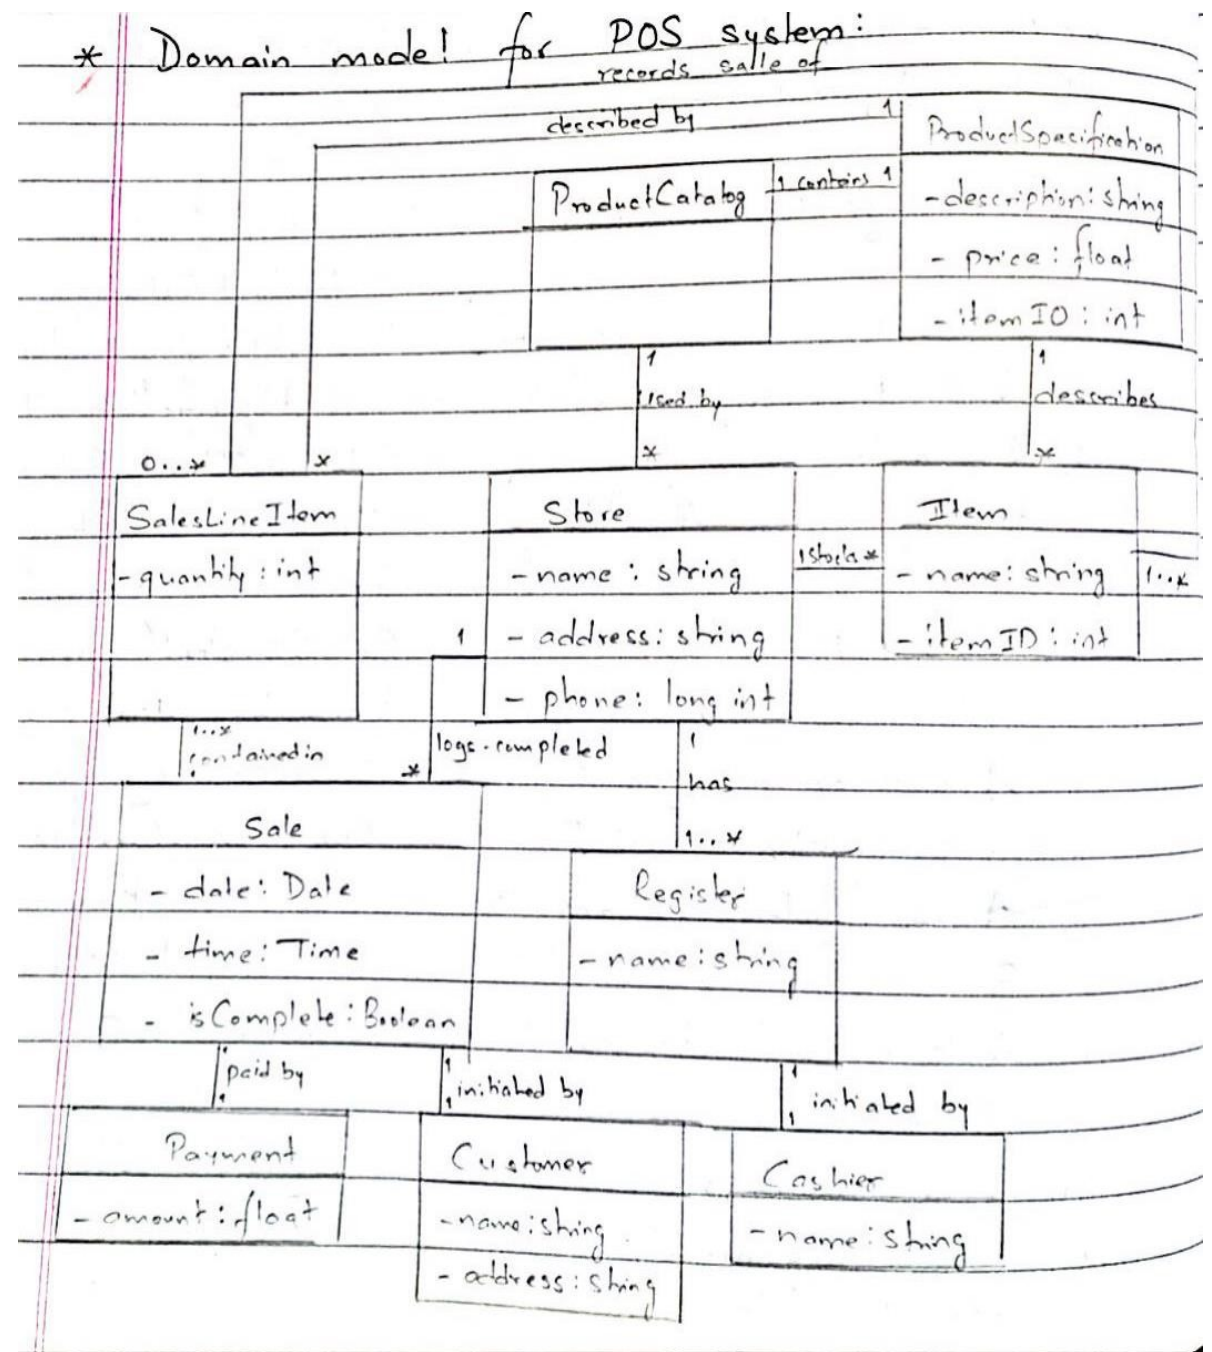 * Domain model for POS system:
records salle of
described by 1
ProductSpecification
- description: string
- price: float
- itemIO: int
ProductCatalog
1 contains 1
1
Used by
*
1
describes
*
0..*
*
SalesLineItem
- quantity: int
Store
- name: string
- address: string
- phone: long int
1 Stocks *
Item
- name: string
- itemID: int
1..*
1
logs-completed
*
1..*
contained in
1
has
1..*
Sale
- date: Date
- time: Time
- isComplete: Boolean
Register
- name: string
paid by
1
1
initiated by
1
1
initiated by
1
Payment
- amount: float
Customer
- name: string
- address: string
Cashier
- name: string